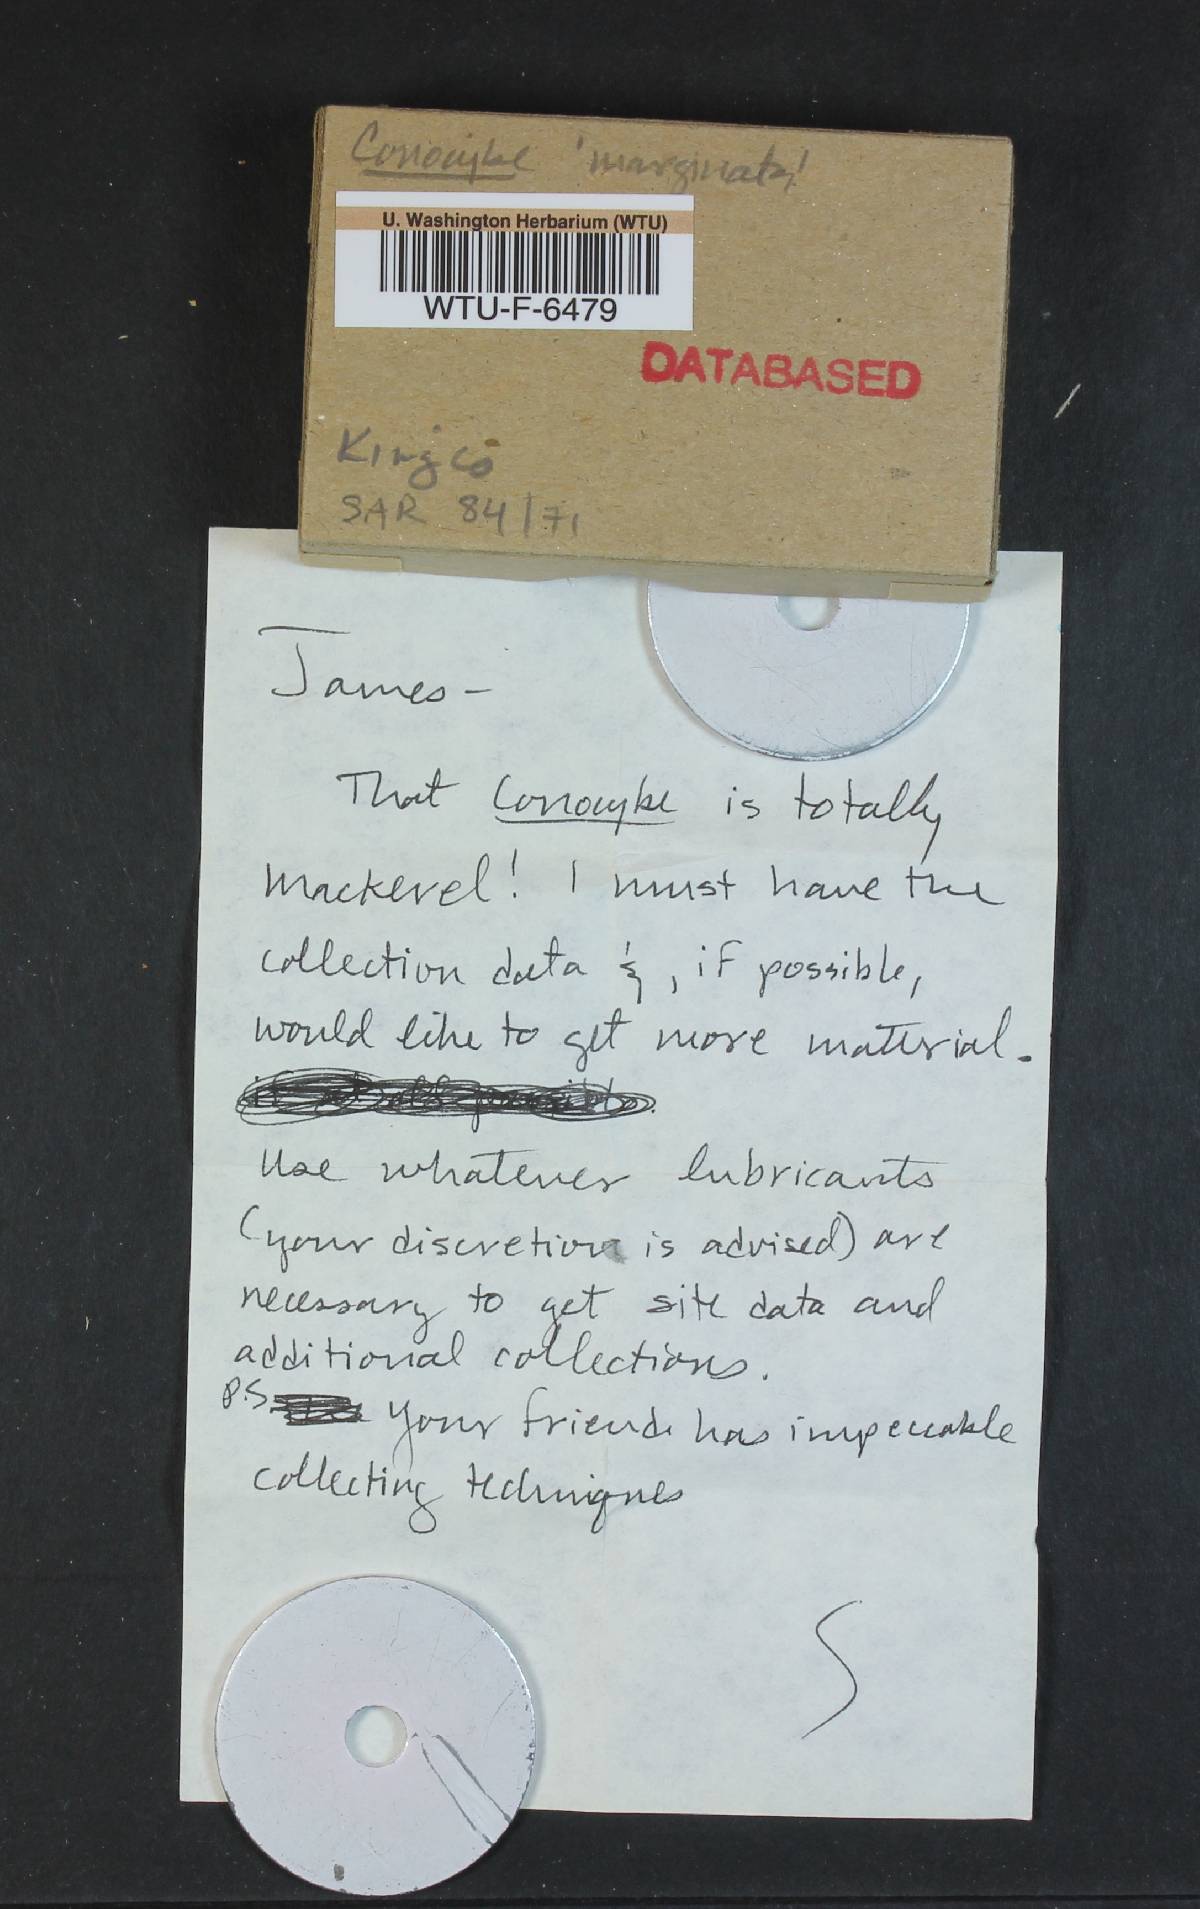 Conocybe 'marginata'
U. Washington Herbarium (WTU)
WTU-F-6479
DATABASED
King Co
SAR 84/71
James -
That Conocybe is totally
mackerel! I must have the
collection data &, if possible,
would like to get more material.
Use whatever lubricants
(your discretion is advised) are
necessary to get site data and
additional collections.
P.S. Your friend has impeccable
collecting techniques
S